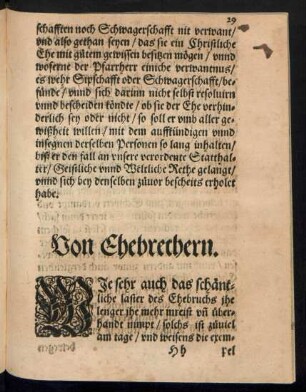 29
schafften noch Schwagerschafft nit verwant/
vnd also gethan seyen/ das sie ein Christliche
Ehe mit gůtem gewissen besitzen mögen/ vnnd
woferne der Pfarrherr einiche verwantnus/
es wehr Sipschafft oder Schwagerschafft/ be-
fünde/ vnnd sich darumb nicht selbst resoluirn
vnnd bescheiden köndte/ ob sie der Ehe verhin-
derlich sey oder nicht/ so soll er vmb aller ge-
wißheit willen/ mit dem auffkündigen vnnd
insegnen derselben Personen so lang inhalten/
biß er den fall an vnsere verordente Statthal-
ter/ Geistliche vnnd Weltliche Rethe gelangt/
vnnd sich bey denselben zůuor bescheits erholet
habe.
Von Ehebrechern.
WJe sehr auch das schänt-
liche laster des Ehebruchs ihe
lenger ihe mehr inreist vñ über-
hande nimpt/ solchs ist zůuiel
am tage/ vnd weisens die exem-
Hh pel